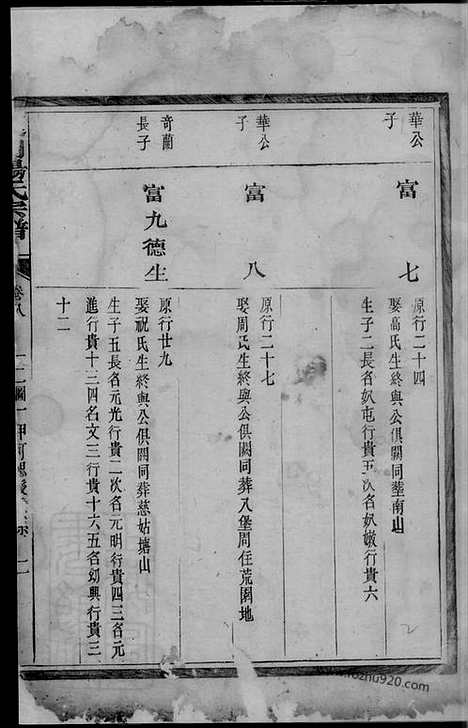 華公
子
富七
原行二十四
娶高氏生終與公俱闕同塟南山
生子二長名奺屯行貴五次名奺嫩行貴六
華公
子
富八
原行二十七
娶周氏生終與公俱闕同葬入堡周住荒園地
奇蘭
長子
富九德生
原行廿九
娶祝氏生終與公俱闕同葬慈姑塘山
生子五長名元光行貴二次名元明行貴四三名元
進行貴十三四名文三行貴十六五名幼興行貴三
十二
湯氏宗譜
卷八
2